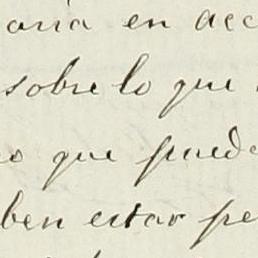 oria en acc
sobre lo que
o que puede
ben estar pe